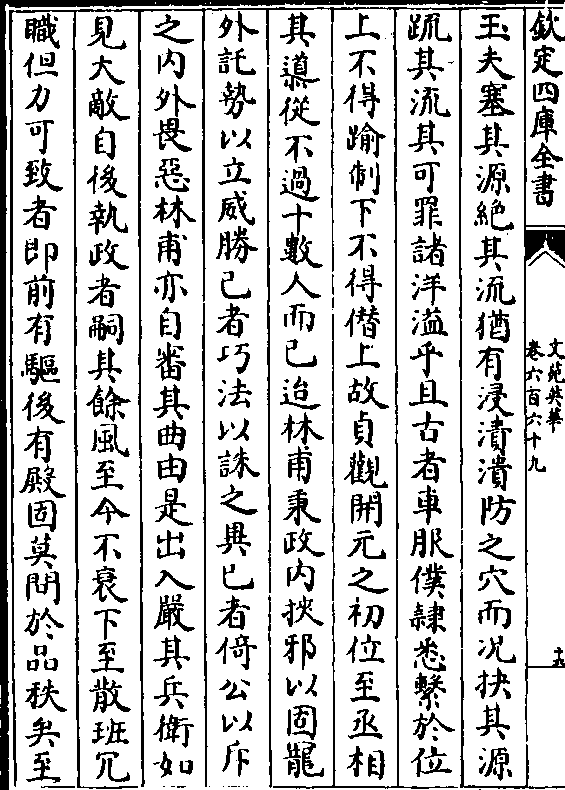 欽定四庫全書
文苑英華
卷六百六十九
十五
玉夫塞其源絶其流猶有浸漬潰防之穴而况抉其源
疏其流其可罪諸洋溢乎且古者車服僕隷悉繫於位
上不得踰制下不得僭上故貞觀開元之初位至丞相
其導從不過十數人而已迨林甫秉政内挾邪以固寵
外託勢以立威勝己者巧法以誅之異已者倚公以斥
之内外畏惡林甫亦自審其曲由是出入嚴其兵衛如
見大敵自後執政者嗣其餘風至今不衰下至散班冗
職但力可致者即前有驅後有殿固莫問於品秩矣至